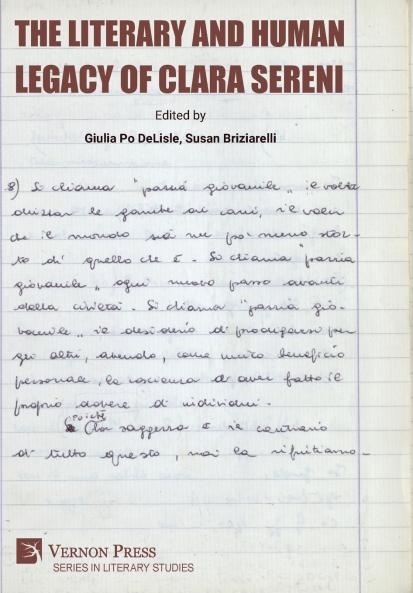 THE LITERARY AND HUMAN
LEGACY OF CLARA SERENI
Edited by
Giulia Po DeLisle, Susan Briziarelli
8) Si chiama "pazzia giovanile„ il voler
drizzar le gambe ai cani, il voler
che il mondo sia un po' meno stor-
to di quello che è. Si chiama "pazzia
giovanile„ ogni nuovo passo avanti
della civiltà. Si chiama "pazzia gio-
vanile„ il desiderio di prodigarsi per
gli altri, avendo, come unico beneficio
personale, la coscienza di aver fatto il
proprio dovere di individui.
Poichè
la saggezza è il contrario
di tutto questo, noi la rifiutiamo.
VERNON PRESS
SERIES IN LITERARY STUDIES